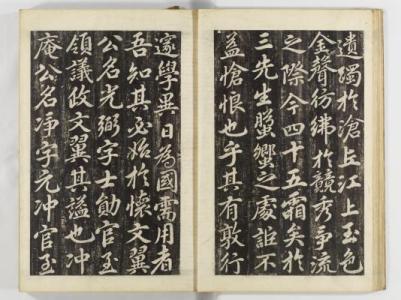 遺躅於滄丘江上玉色
金聲彷彿於競秀爭流
之際今四十五霜矣於
三先生蠁之處詎不
益愴恨也乎其有敦行
家學異日為國需用者
吾知其必始於懷文翼
公名光弼字士勛官至
領議政文翼其謚也冲
庵公名淨字元冲官至